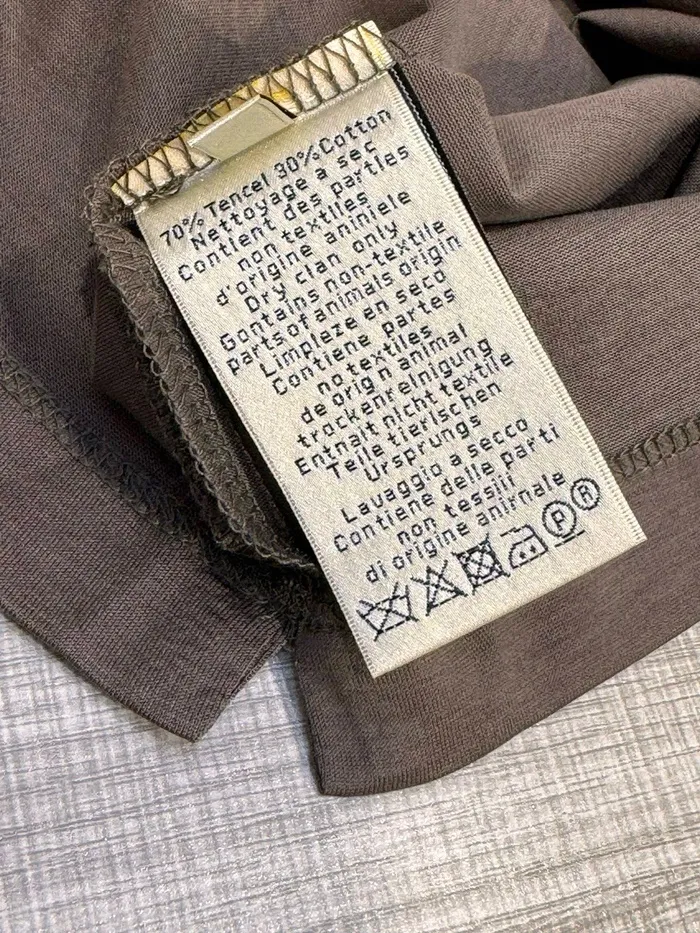 70% Tencel 30%Cotton
Nettoyage a sec
Contient des partles
non textiles
d'origine aniniele
Dry clan only
Gontains non-textile
partsofanimais origin
Limpleze en seco
Contiene partes
no textiles
de orign animal
trockenreinigung
Entnalt nicht textile
Teile tierlschen
Ursprungs
Lavaggio a secco
Contiene delle parti
non tessiif
di origine anirnale
P R